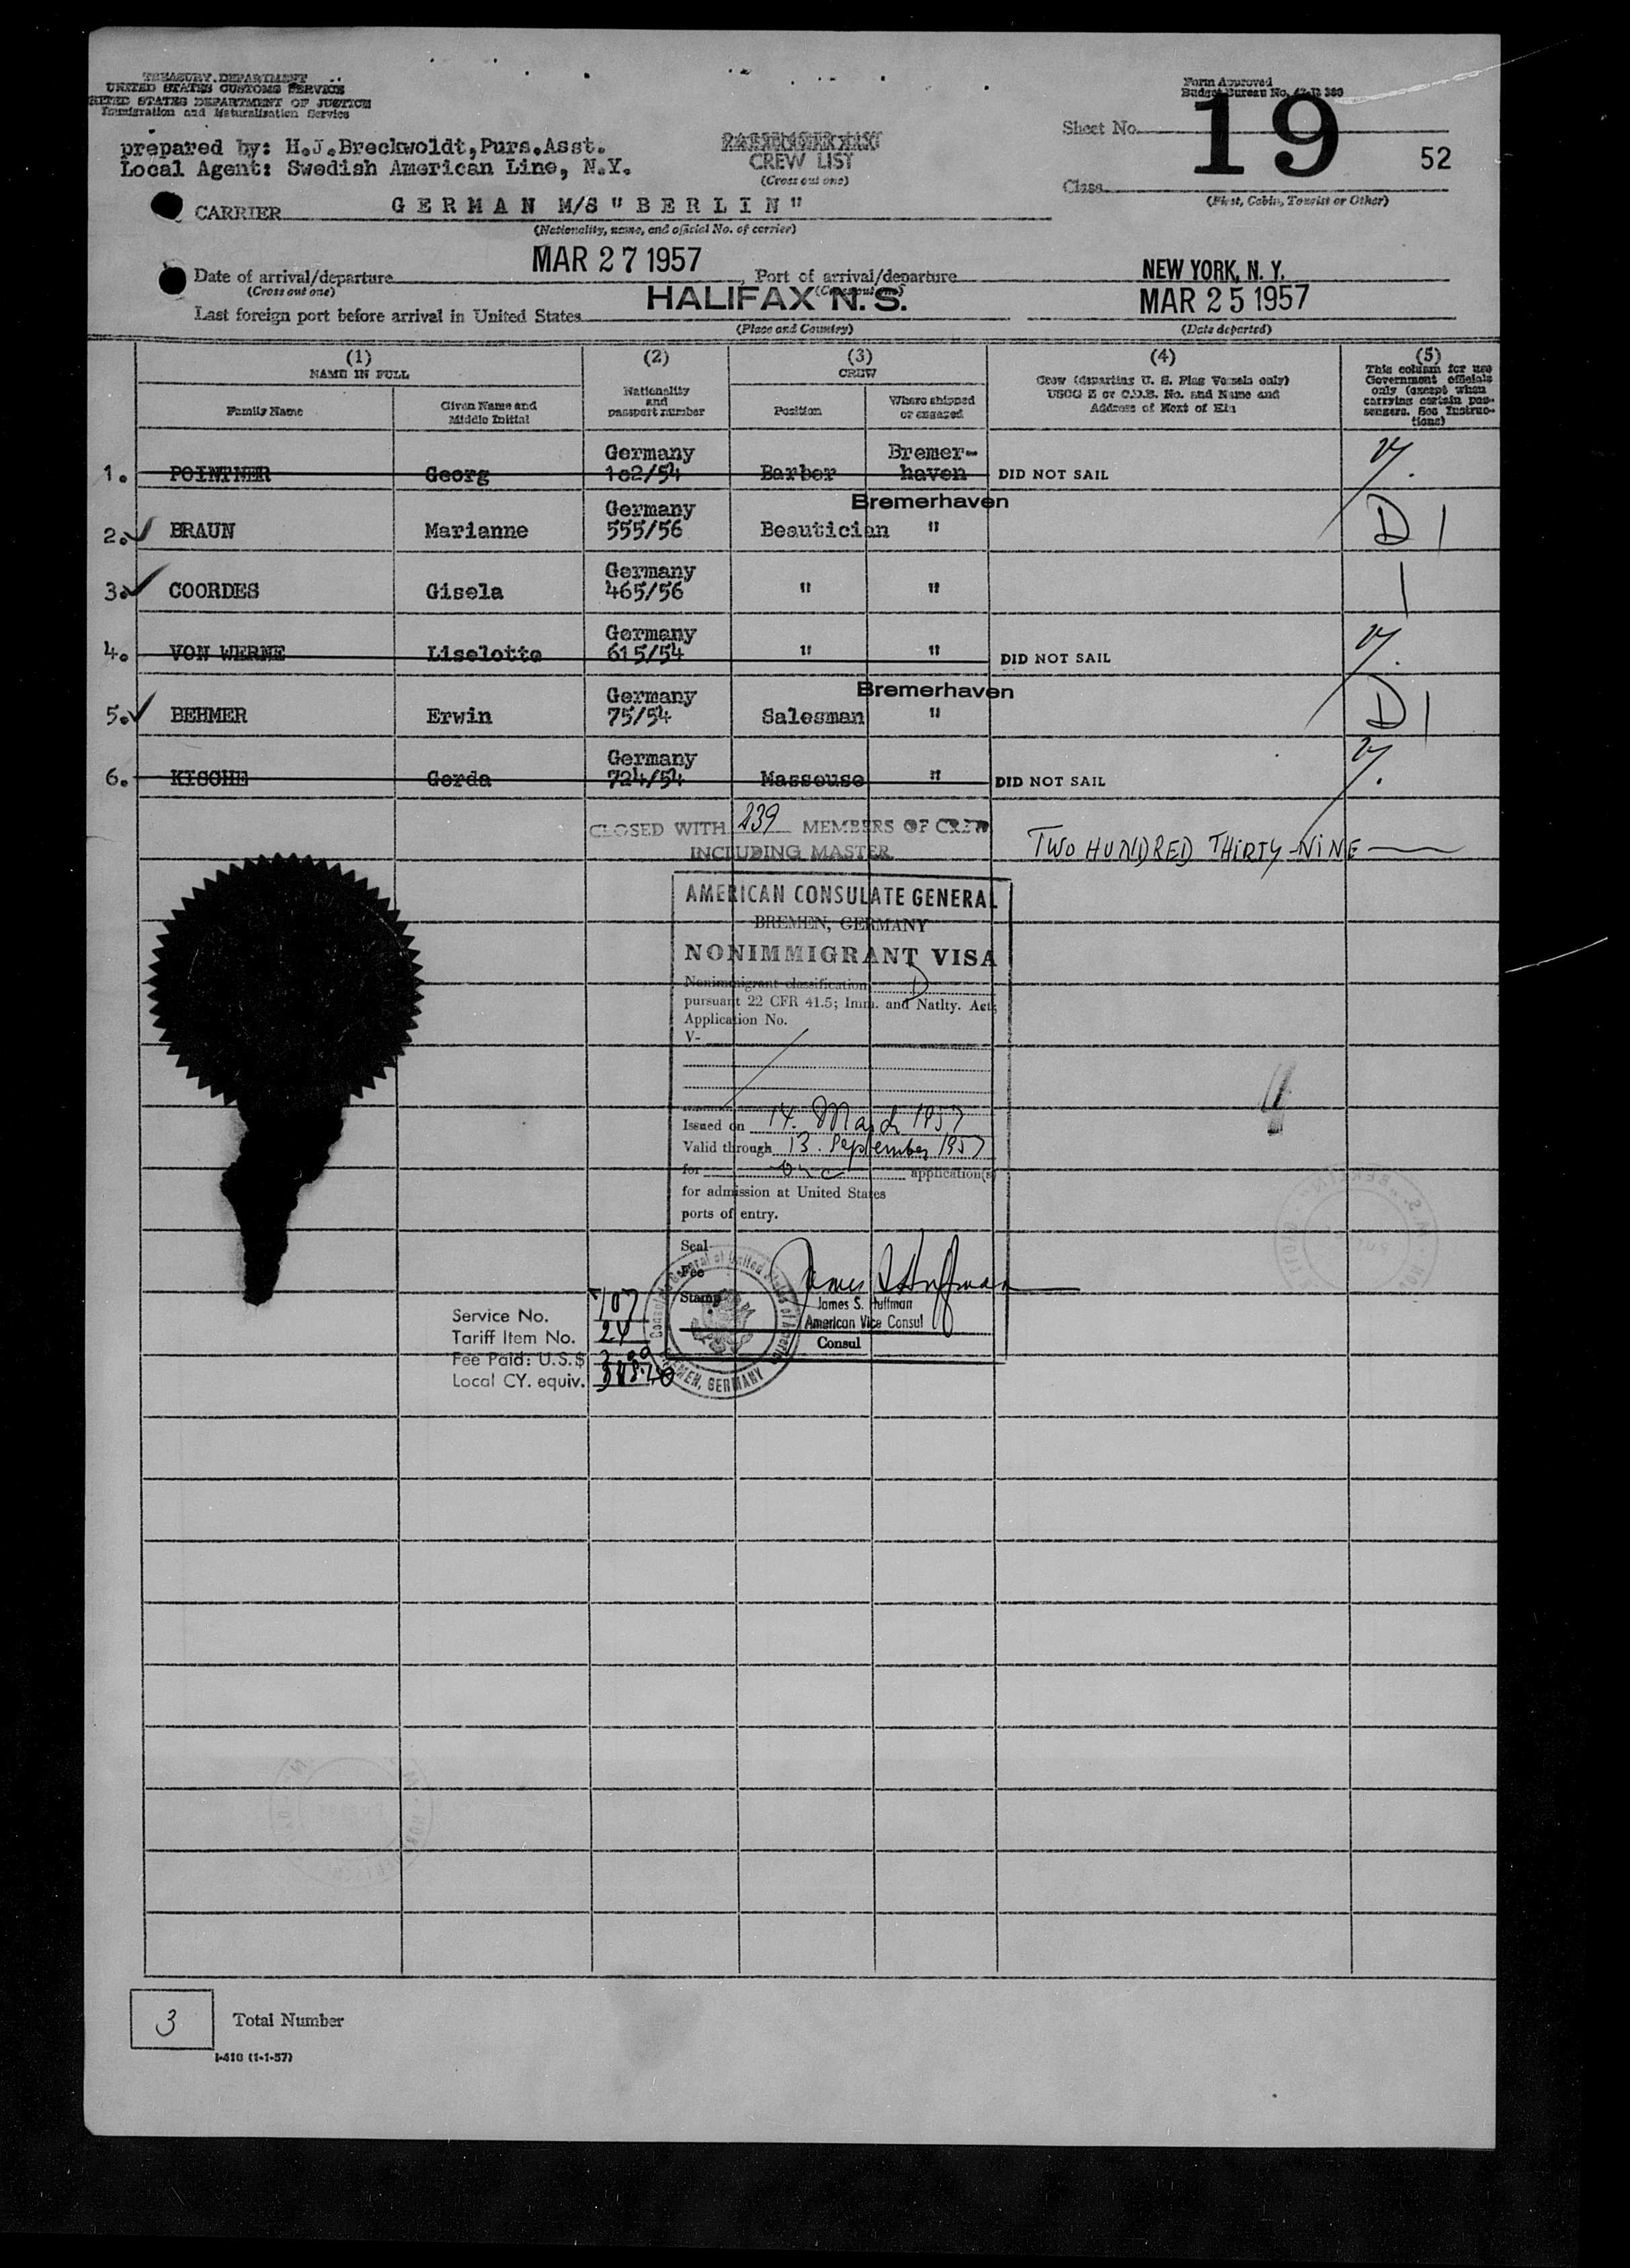 TREASURY DEPARTMENT
UNITED STATES CUSTOMS SERVICE
UNITED STATES DEPARTMENT OF JUSTICE
Immigration and Naturalization Service
Form Approved
Budget Bureau No.
prepared by: H.J.Breckwoldt,Purs.Asst.
Local Agent: Swedish American Line, N.Y.
CREW LIST
(Cross out one)
Sheet No. 19
52
Class
(First, Cabin, Tourist or Other)
CARRIER GERMAN M/S "BERLIN"
(Nationality, name, and official No. of carrier)
Date of arrival/departure MAR 27 1957 Port of arrival/departure NEW YORK, N. Y.
(Cross out one) (Cross out one)
Last foreign port before arrival in United States HALIFAX N.S. MAR 25 1957
(Place and Country) (Date departed)
(1) (2) (3) (4) (5)
NAME IN FULL
Family Name
Given Name and Middle Initial
Nationality and passport number
CREW
Position
Where shipped or engaged
Crew (departing U. S. Flag Vessels only)
USCG Z or C.D.B. No. and Name and
Address of Next of Kin
This column for use Government officials only (except when carrying certain passengers. See Instructions)
1. POINTNER Georg Germany 182/54 Barber Bremer-haven DID NOT SAIL
Bremerhaven
2. BRAUN Marianne Germany 555/56 Beautician " D 1
3. COORDES Gisela Germany 465/56 " " 1
4. VON WERNE Liselotte Germany 615/54 " " DID NOT SAIL
Bremerhaven
5. BEHMER Erwin Germany 75/54 Salesman " D 1
6. KISCHE Gerda Germany 724/54 Masseuse " DID NOT SAIL
CLOSED WITH 239 MEMBERS OF CREW
INCLUDING MASTER
TWO HUNDRED THIRTY-NINE
AMERICAN CONSULATE GENERAL
BREMEN, GERMANY
NONIMMIGRANT VISA
Nonimmigrant classification D
pursuant 22 CFR 41.5; Imm. and Natlty. Act;
Application No.
V-
Issued on 14. March 1957
Valid through 13. September 1957
for one application(s)
for admission at United States
ports of entry.
Seal
Fee
Stamp
James S. Huffman
James S. Huffman
American Vice Consul
Consul
Consulate General of United States of America
BREMEN, GERMANY
Service No. 5107
Tariff Item No. 24
Fee Paid: U.S.$
Local CY. equiv.
3 Total Number
I-418 (1-1-57)